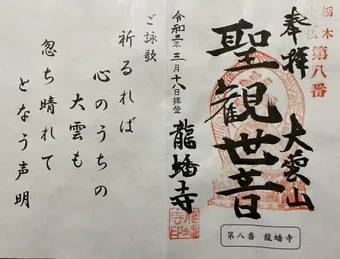 栃木
第八番
奉拝
大雲山
聖観世音
龍蟠寺
第八番 龍蟠寺
令和三年三月十八日拝登
ご詠歌
祈るれば
心のうちの
大雲も
忽ち晴れて
となう声明